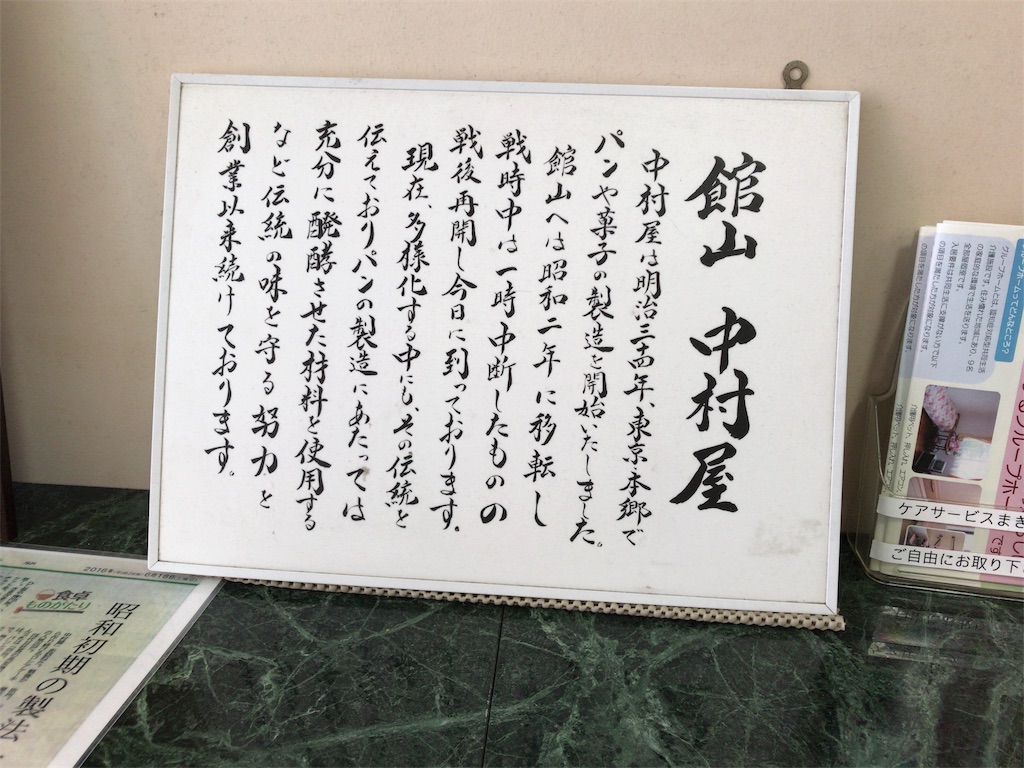 館山 中村屋
中村屋は明治三四年、東京・本郷で
パンや菓子の製造を開始いたしました。
館山へは昭和二年に移転し
戦時中は一時中断したものの
戦後再開し今日に到っております。
現在、多様化する中にも、その伝統を
伝えておりパンの製造にあたっては
充分に醗酵させた材料を使用する
など伝統の味を守る努力を
創業以来続けております。
食卓
ものがたり
昭和初期の製法
ケアサービスまき
ご自由にお取り下